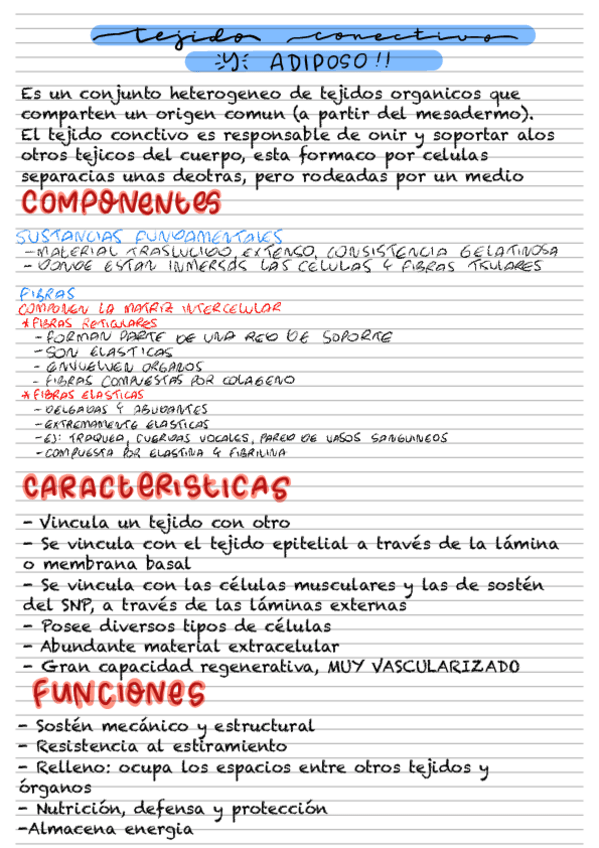 tejido conectivo
Y ADIPOSO!!
Es un conjunto heterogeneo de tejidos organicos que
comparten un origen comun (a partir del mesadermo).
El tejido conctivo es responsable de onir y soportar alos
otros tejicos del cuerpo, esta formaco por celulas
separacias unas deotras, pero rodeadas por un medio
COMPONENtes
SUSTANCIAS FUNDAMENTALES
-MATERIAL TRASLUCIDO, EXTENSO, CONSISTENCIA GELATINOSA
- DONDE ESTAN INMERSOS LAS CELULAS Y FIBRAS TISULARES
FIBRAS
COMPONEN LA MATRIZ INTERCELULAR
*FIBRAS RETICULARES
-FORMAN PARTE DE UNA RED DE SOPORTE
-SON ELASTICAS
- ENVUELVEN ORGANOS
- FIBRAS COMPUESTAS POR COLAGENO
*FIBRAS ELASTICAS
-DELGADAS Y ABUDANTES
-EXTREMAMENTE ELASTICAS
-EJ: TRAQUEA, CUERDAS VOCALES, PARED DE VASOS SANGUINEOS
-COMPUESTA POR ELASTINA Y FIBRILINA
CARACteRISTICAS
- Vincula un tejido con otro
- Se vincula con el tejido epitelial a través de la lámina
o membrana basal
- Se vincula con las células musculares y las de sostén
del SNP, a través de las láminas externas
- Posee diversos tipos de células
- Abundante material extracelular
- Gran capacidad regenerativa, MUY VASCULARIZADO
FUNCIONES
- Sostén mecánico y estructural
- Resistencia al estiramiento
- Relleno: ocupa los espacios entre otros tejidos y
órganos
- Nutrición, defensa y protección
-Almacena energia